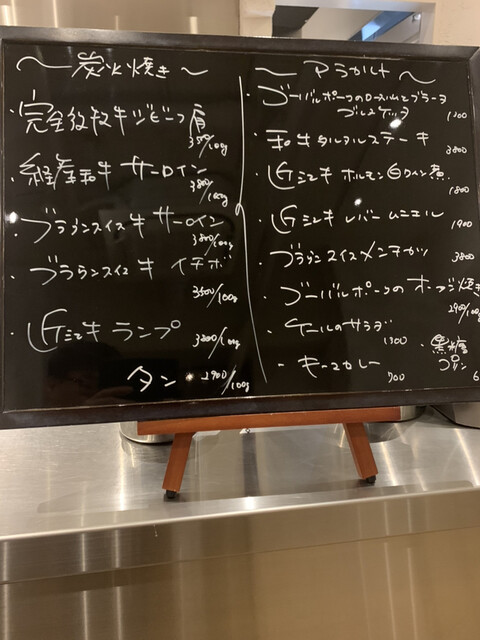 〜炭火焼き〜
・完全放牧牛ジビーフ肩
3500/100g
・経産和牛 サーロイン
3800/100g
・ブラウンスイス牛 サーロイン
3800/100g
・ブラウンスイス牛 イチボ
3500/100g
・山ミ牛 ランプ
3200/100g
タン・2900/100g
〜アラカルト〜
・ゴーバルポークのロースハムとブラータ
ブルスケッタ
1200
・和牛タルタルステーキ
3800
ホルモン白ワイン煮
1800
レバームニエル
1900
・ブラウンスイスメンチカツ
3800
・ゴーバルポークのオーブン焼き
2900/100g
・ケールのサラダ
1300
・黒糖
プリン
・キーマカレー
700
6